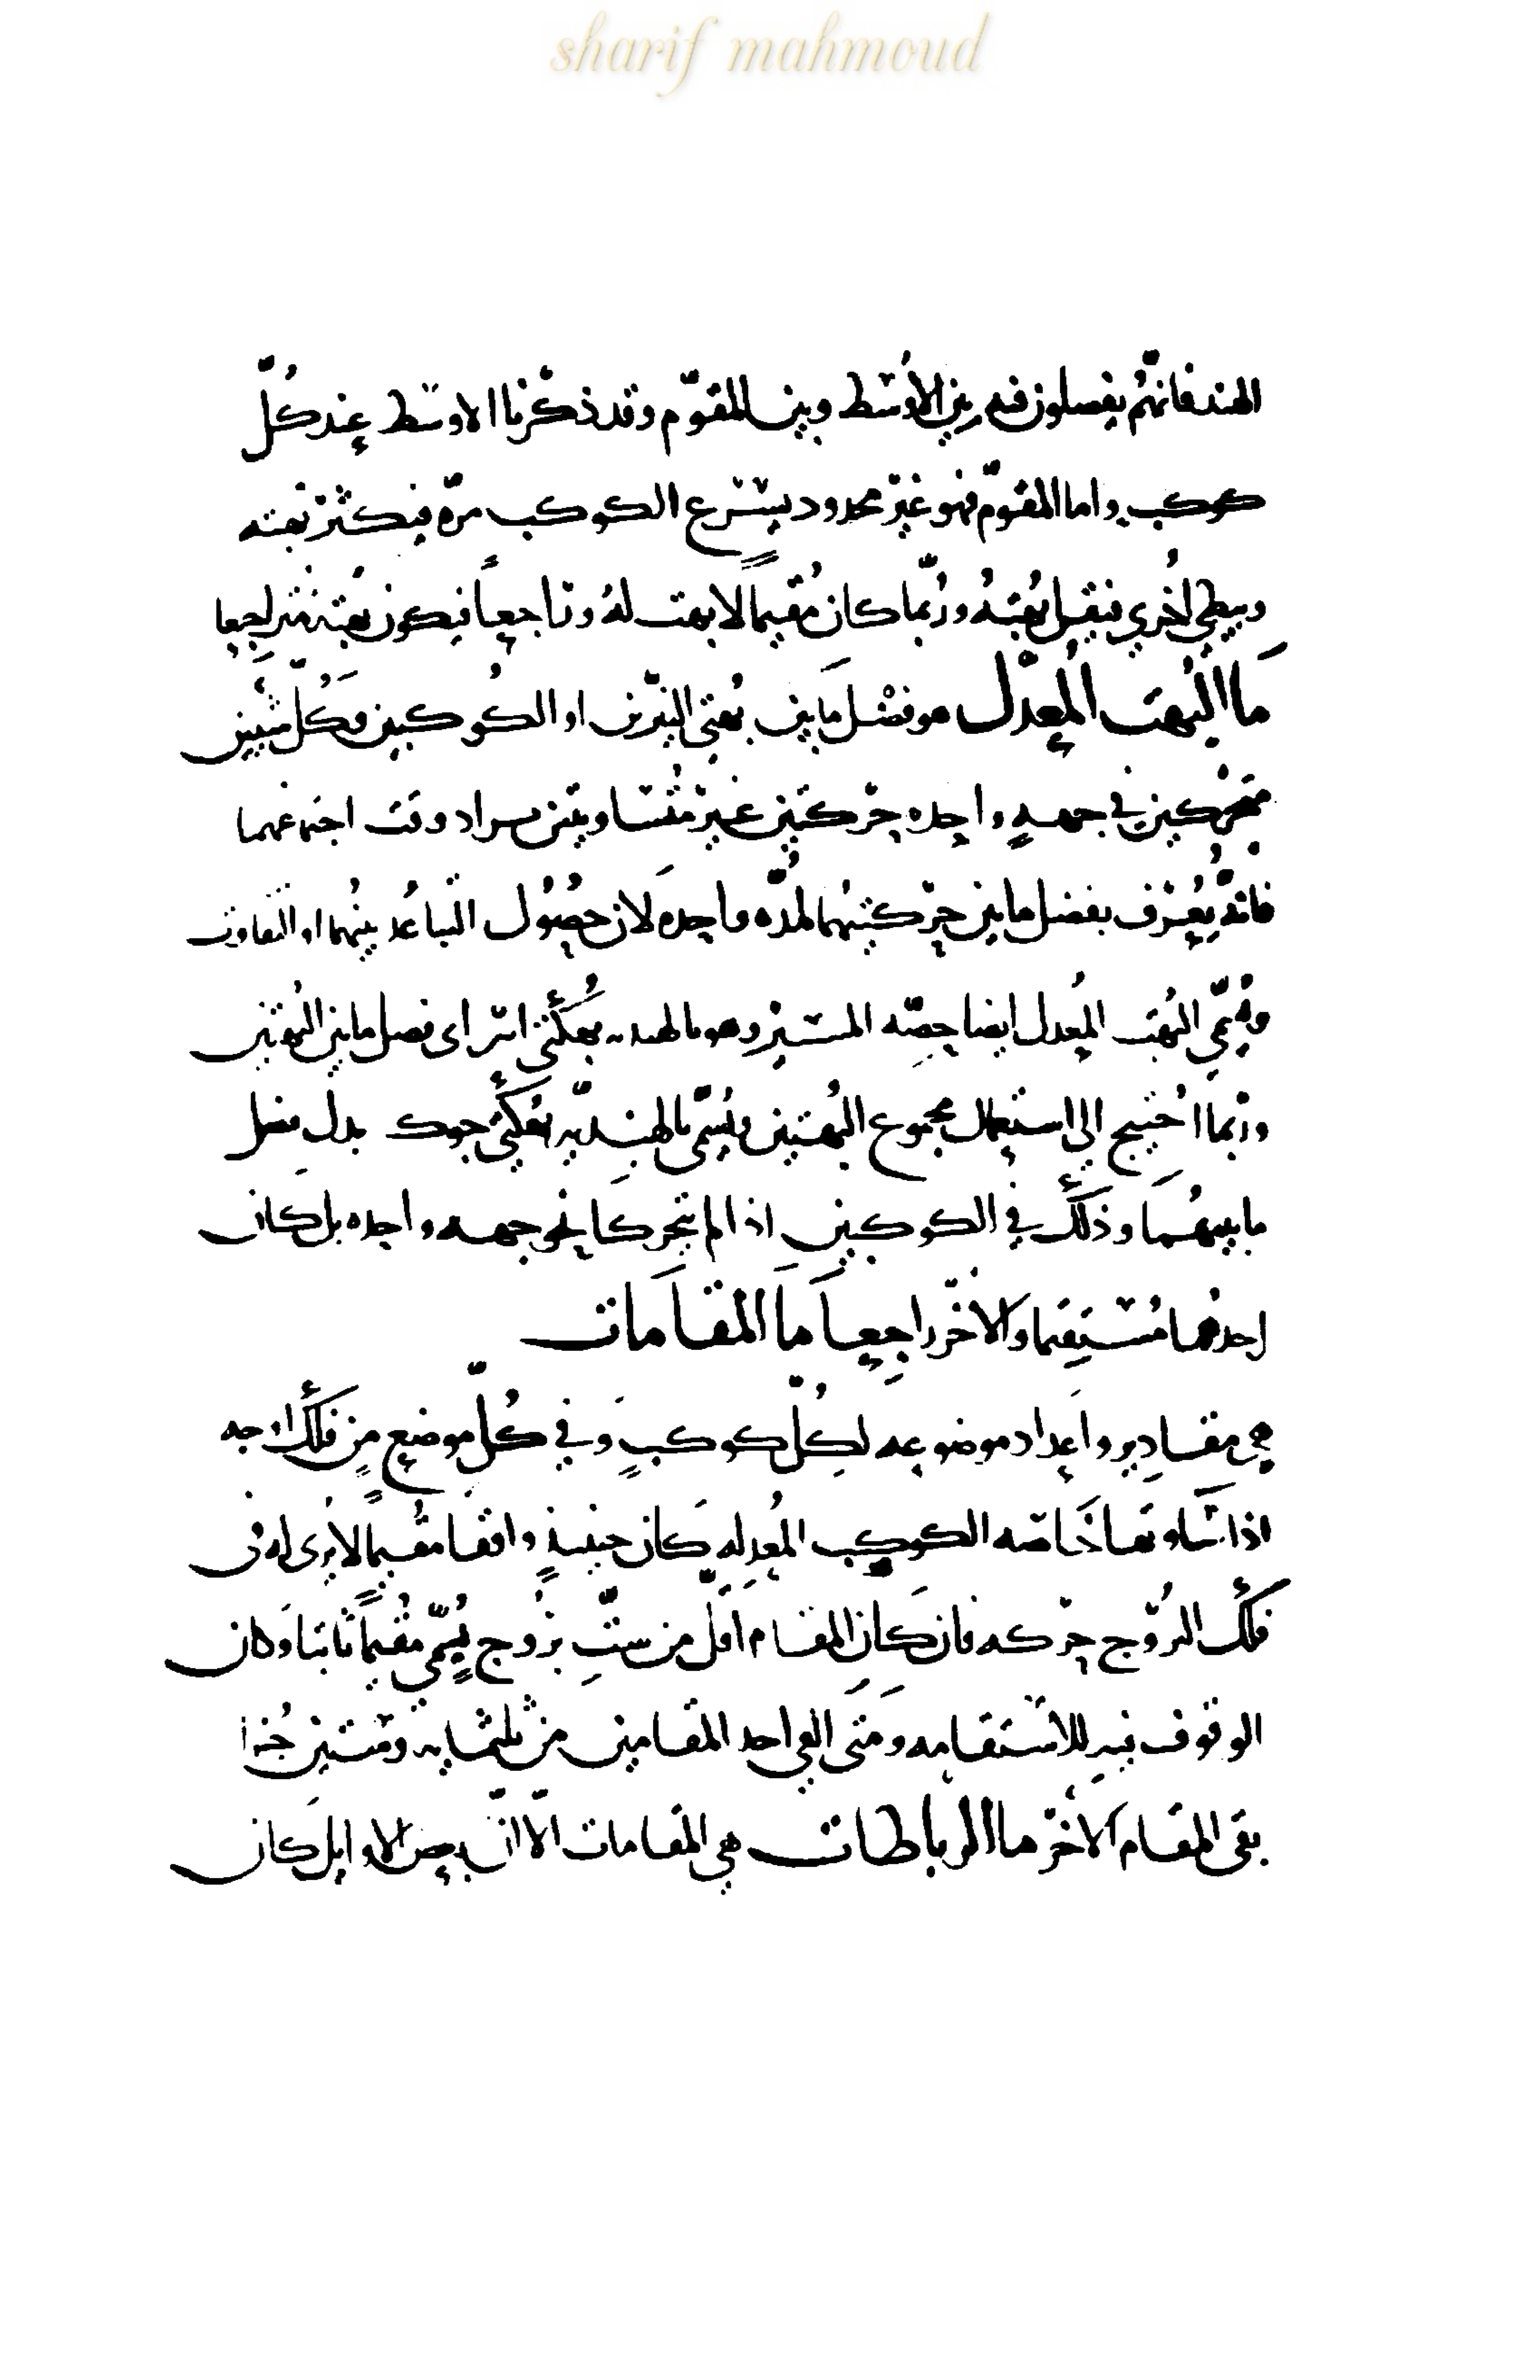 sharif mahmoud
الهند فانّهُم يفصلون فيه بين الأوسَط وبين المقوّم وقد ذكرنا الاوسَط عند كُلّ
كوكب واما المقوّم فهو غير محدود يسْرع الكوكب مرّه فيكثر بهته
ويبطي اُخري فيقل بُهتهُ ورُبّما كان مُقيماً لا بهت لهُ وراجعاً فيكون بهته راجعا
مَا البُهت المُعدّل هو فضْل مَا بين بُهتي النيّرين او الكُوكبين وكُلّ شيئين
متحركين في جهه واحده حركتين غير مُتساويتين يراد وقت اجتماعهما
فانّه يُعرف بفضل ما بين حركتيهُما لمُدّه واحده لان حصُول التباعُد بينهُما او التفاوت
ويُسمّي البُهت المُعدل ايضا حصّه المسير وهو بالهنديه بُهكتي انتر اى فصل ما بين البهتين
ورُبّما اُحتيج الى استعمال مجموع البُهتين ويُسمّى بالهنديّه بُهكتي جوك بدل فضل
ما بينهُمَا وذلكَ في الكوكبين اذا لم يتحركَا نحو جهه واحده بل كان
احدهُما مُستقيما والآخر راجعاً مَا المقامَات
هي مقادير واعداد موضوعه لكُلّ كوكبٍ وفي كُلّ موضعٍ من فلك اوجه
اذا ساوتها خاصّه الكوكب المُعدله كان حينئذٍ واقفا مُقيماً لا يرى له في
فلك البرُوج حركه فان كان المقام اقلّ من ستّه بُروج يُسمّى مُقيماً ثانيا وكان
الوقوف فيه للاستقامه ومتى القي احد المقامين من ثلثمايه وستين جُزءا
بقي المقام الآخر ما الرباطات هي المقامات الّا انّ بعض الاوايل كان